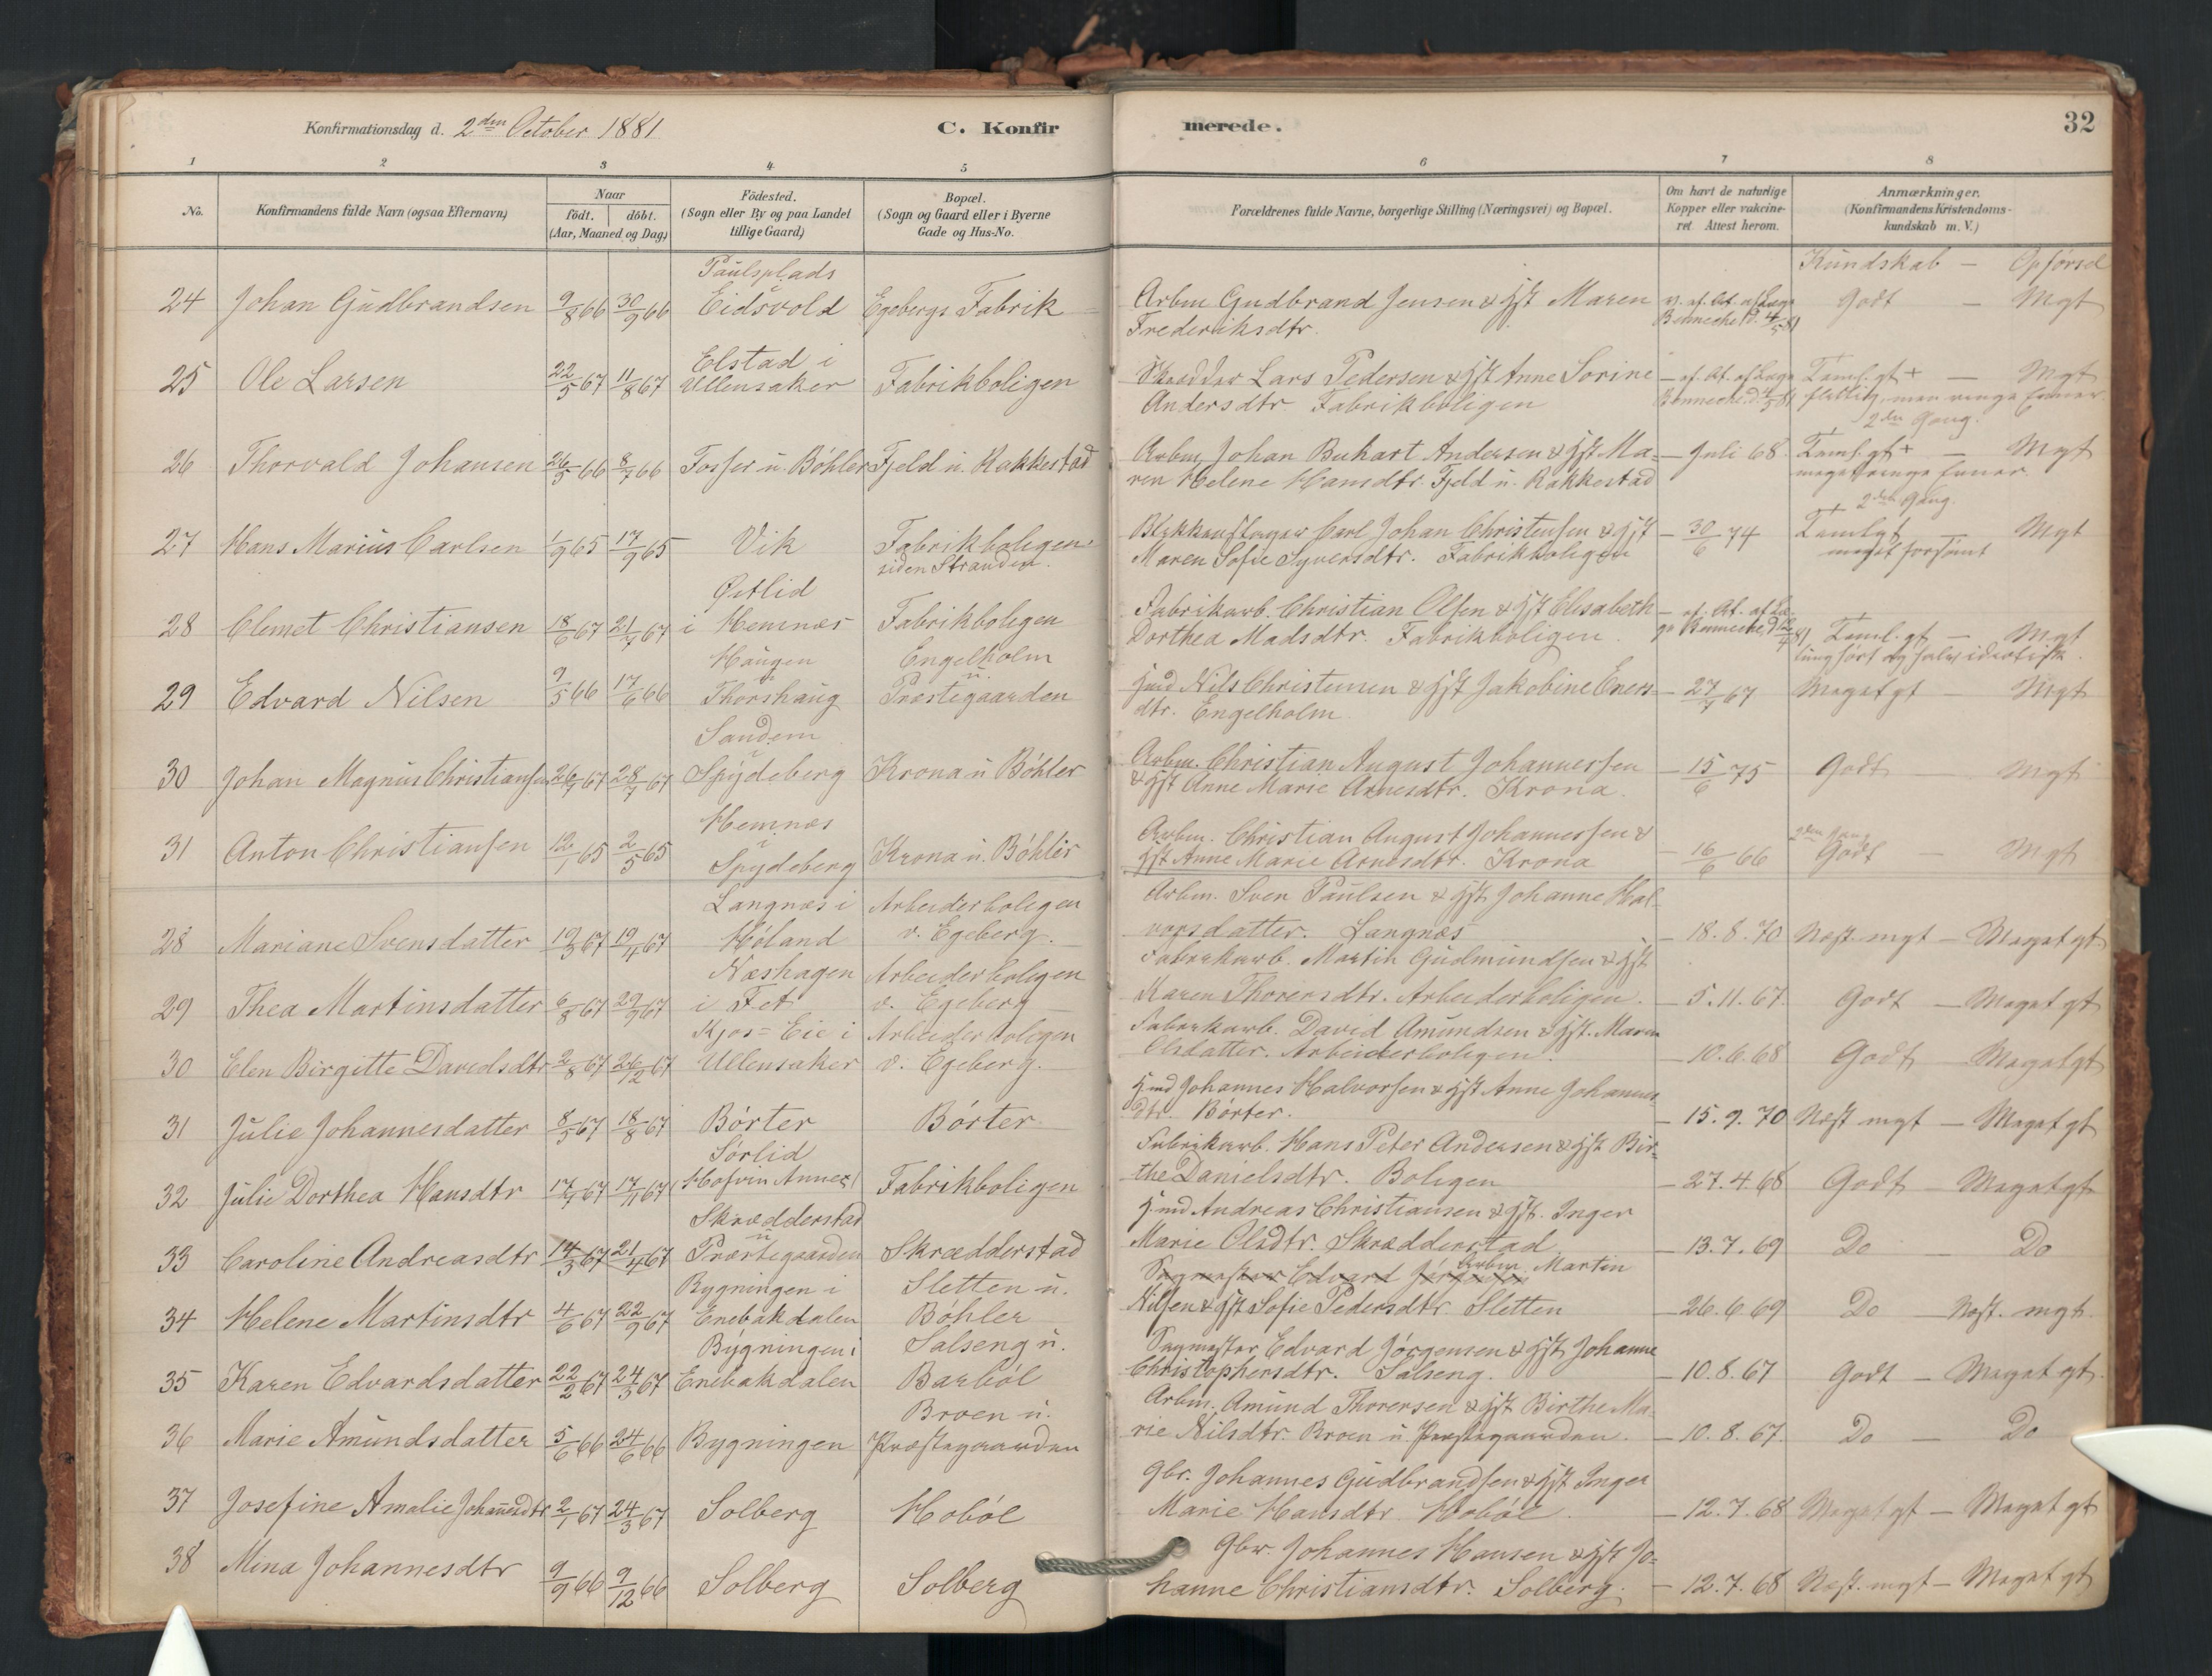 Konfirmationsdag d. 2den October 1881
C. Konfirmerede.
32
1 2 3 4 5 6 7 8
No.
Konfirmandens fulde Navn (ogsaa Efternavn)
Naar
födt. döbt.
(Aar, Maaned og Dag)
Födested.
(Sogn eller By og paa Landet
tillige Gaard)
Bopæl.
(Sogn og Gaard eller i Byerne
Gade og Hus-No.
Forældrenes fulde Navne, borgerlige Stilling (Næringsvei) og Bopæl.
Om havt de naturlige
Kopper eller vakcine-
ret. Attest herom.
Anmærkninger.
(Konfirmandens Kristendoms-
kundskab m. V.)
Kundskab — Opførsel
Paulsplads
i
24 Johan Gudbrandsen 9/8 66 30/9 66 Eidsvold Egebergs Fabrik Arbm Gudbrand Jensen & Hst Maren v. af. At. af Læge Godt — Mgt
Frederiksdtr. Bennecke, d. 4/5 81
Elstad i
25 Ole Larsen 22/5 67 11/8 67 Ullensaker Fabrikboligen Skrædder Lars Pedersen & Hst Anne Sorine — af. At. af Læge Teml. gt + — Mgt
Andersdtr. Fabrikboligen Bennecke d. 4/5 81 flittig, men ringe Evner.
2den Gang.
26 Thorvald Johansen 26/5 66 8/7 66 Fosser u. Böhler Fjeld u. Rakkestad Arbm. Johan Buhart Andersen & Hst Ma- — Juli 68 Teml. gt + — Mgt
ren Helene Hansdtr. Fjeld u. Rakkestad meget ringe Evner.
2den Gang.
27 Hans Marius Carlsen 1/9 65 17/9 65 Vik Fabrikboligen Blikkenslager Carl Johan Christensen & Hst — 30/6 74 Temlgt — Mgt
siden Stranden. Maren Sofie Syversdtr. Fabrikboligen meget forsömt
Østlid
28 Clemet Christiansen 18/6 67 21/7 67 i Hemnæs Fabrikboligen Fabrikarb. Christian Olsen & Hst Elisabeth — af. At. af Læ-
Dorthea Madsdtr. Fabrikboligen. ge Bennecke, d. 12/4 81 Teml. gt — Mgt
tunghört og halv idiotisk.
Haugen Engelholm
u. u.
29 Edvard Nilsen 9/5 66 17/6 66 Thorshaug Præstegaarden Hmd Nils Christensen & Hst Jakobine Eners- — 27/7 67 Meget gt — Mgt
dtr. Engelholm
Sandem
i
30 Johan Magnus Christiansen 26/4 67 28/7 67 Spydeberg Krona u Böhler Arbm. Christian August Johannessen — 15/6 75 Godt — Mgt
& Hst Anne Marie Arnesdtr. Krona.
Hemnæs
i
31 Anton Christiansen 12/1 65 2/5 65 Spydeberg Krona u. Böhler Arbm. Christian August Johannessen & — 16/6 66 2den Gang Godt — Mgt
Hst Anne Marie Arnesdtr. Krona
Langnæs i Arbeiderboligen Arbm. Sven Paulsen & Hst Johanne Hal-
28 Mariane Svensdatter 19/3 67 19/4 67 Höland v. Egeberg. vorsdatter. Langnæs — 18.8.70 Næst. mgt — Meget gt
Næshagen Arbeiderboligen Fabrikarb. Martin Gudmundsen & Hst
29 Thea Martinsdatter 6/8 67 29/9 67 i Fet v. Egeberg Karen Thorersdtr. Arbeiderboligen. — 5.11.67. Godt — Meget gt
Kjos-Eie i Arbeiderboligen Fabrikarb. David Amundsen & Hst. Maren
30 Elen Birgitte Davidsdtr 2/8 67 26/12 67 Ullensaker v. Egeberg. Olsdatter. Arbeiderboligen. — 10.6.68 Godt — Meget gt
Hmd Johannes Halvorsen & Hst Anne Johannes-
31 Julie Johannesdatter 8/5 67 18/8 67 Börter Börter dtr. Börter. — 15.9.70 Næst mgt — Meget gt
Sörlid Fabrikarb. Hans Peter Andersen & Hst Bir-
32 Julie Dorthea Hansdtr 17/4 67 Hofvin Annex Fabrikboligen the Danielsdtr. Boligen — 27.4.68 Godt — Meget gt
Skrædderstad Hmd Andreas Christiansen & Hst. Inger
u
33 Caroline Andreasdtr 14/3 67 21/4 67 Præstegaarden Skrædderstad Marie Olsdtr. Skrædderstad — 13.7.69 Do — Do
Bygningen i Sletten u. Sagmester Edvard Jörgensen Arbm. Martin
34 Helene Martinsdtr 4/6 67 22/9 67 Enebakdalen Böhler Nilsen & Hst Sofie Pedersdtr Sletten — 26.6.69 Do — Næst. mgt.
Bygningen i Salseng u. Sagmester Edvard Jörgensen & Hst Johanne
35 Karen Edvardsdatter 22/2 67 24/3 67 Enebakdalen Barböl Christophersdtr. Salseng. — 10.8.67 Godt — Meget gt.
Broen u. Arbm. Amund Thorersen & Hst Birthe Ma-
36 Marie Amundsdatter 5/6 66 24/6 66 Bygningen Præstegaarden rie Nilsdtr Broen u. Præstegaarden. — 10.8.67. Do — Do
Gbr. Johannes Gudbrandsen & Hst Inger
37 Josefine Amalie Johansdtr 2/1 67 24/3 67 Solberg Hoböl Marie Hansdtr Hoböl. — 12.7.68 Meget gt — Meget gt
Gbr. Johannes Hansen & Hst Jo-
38 Mina Johannesdtr 9/9 66 9/12 66 Solberg Solberg hanne Christiansdtr. Solberg. — 12.7.68 Næst. mgt — Meget gt